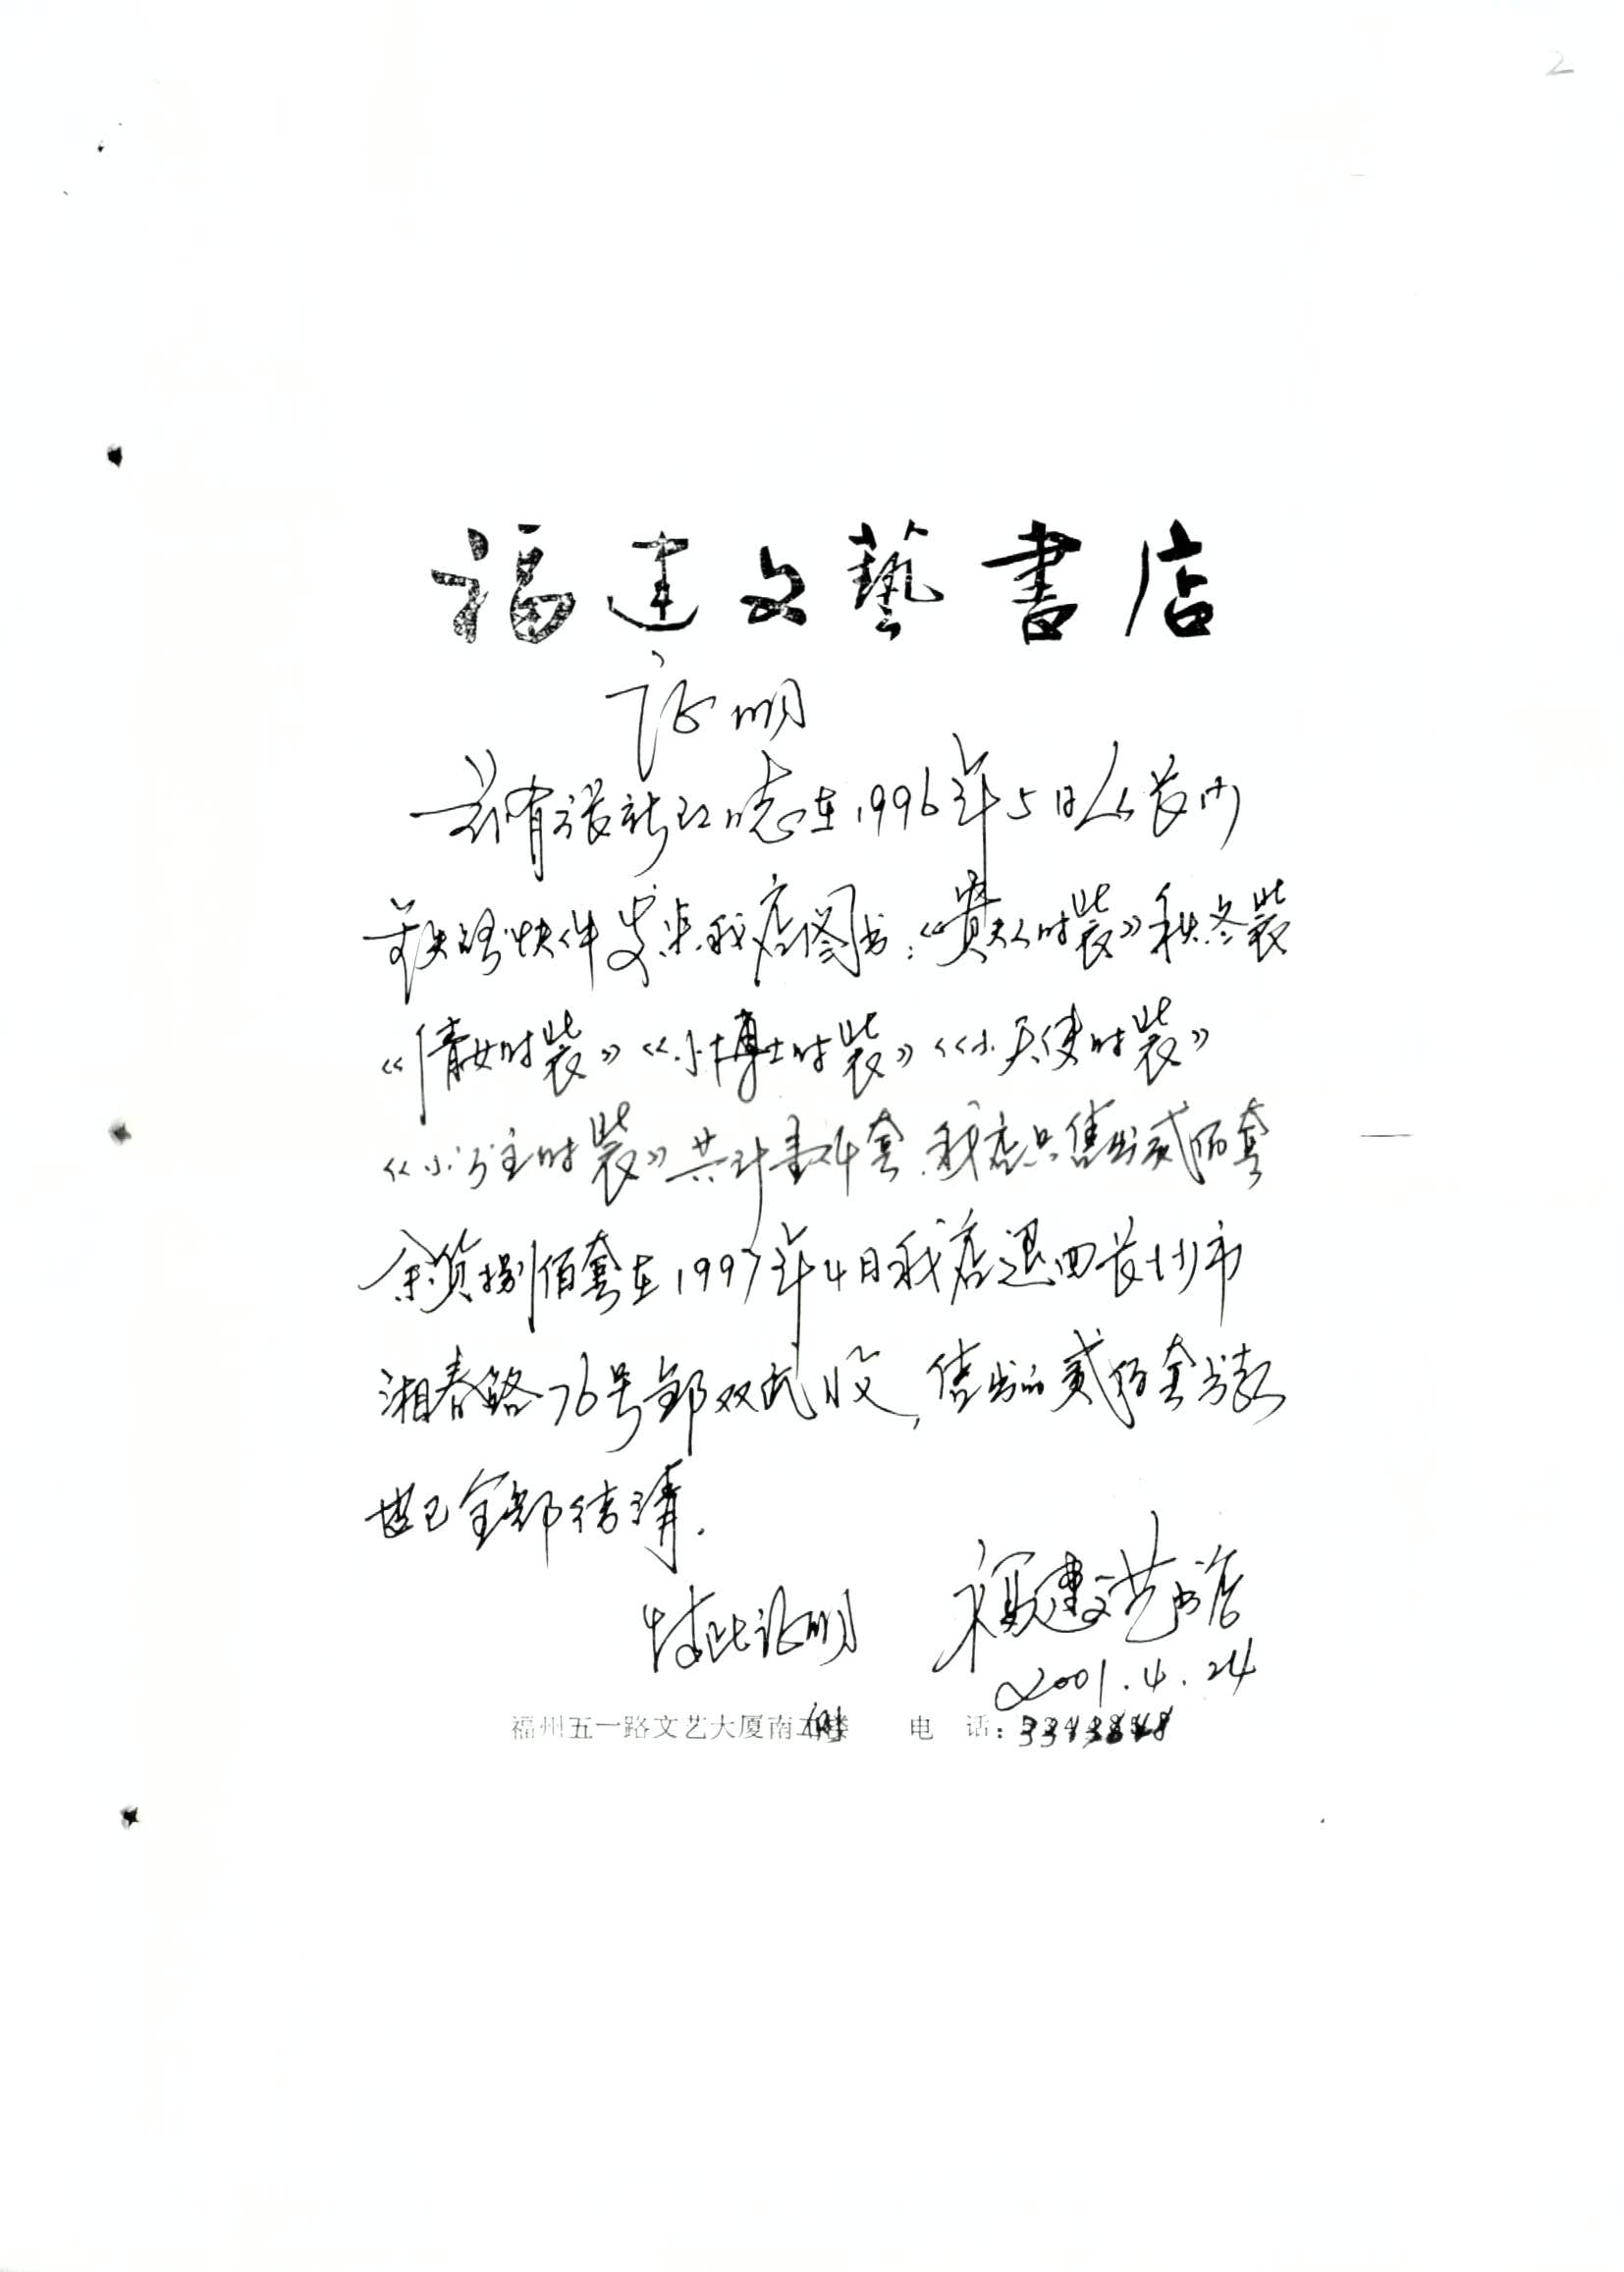 2
福建文藝書店
证明
兹有张新红同志在1996年5月从长沙
铁路快件发来我店图书:《贵夫人时装》秋冬装
《倩女时装》《小博士时装》《小天使时装》
《小公主时装》共计壹仟套.我店只售出贰佰套
余货捌佰套在1997年4月我店退回长沙市
湘春路76号邹双武收,售出的贰佰套书款
也已全部结清.
特此证明 福建文艺书店
2001.4.24
福州五一路文艺大厦南 楼 电 话: